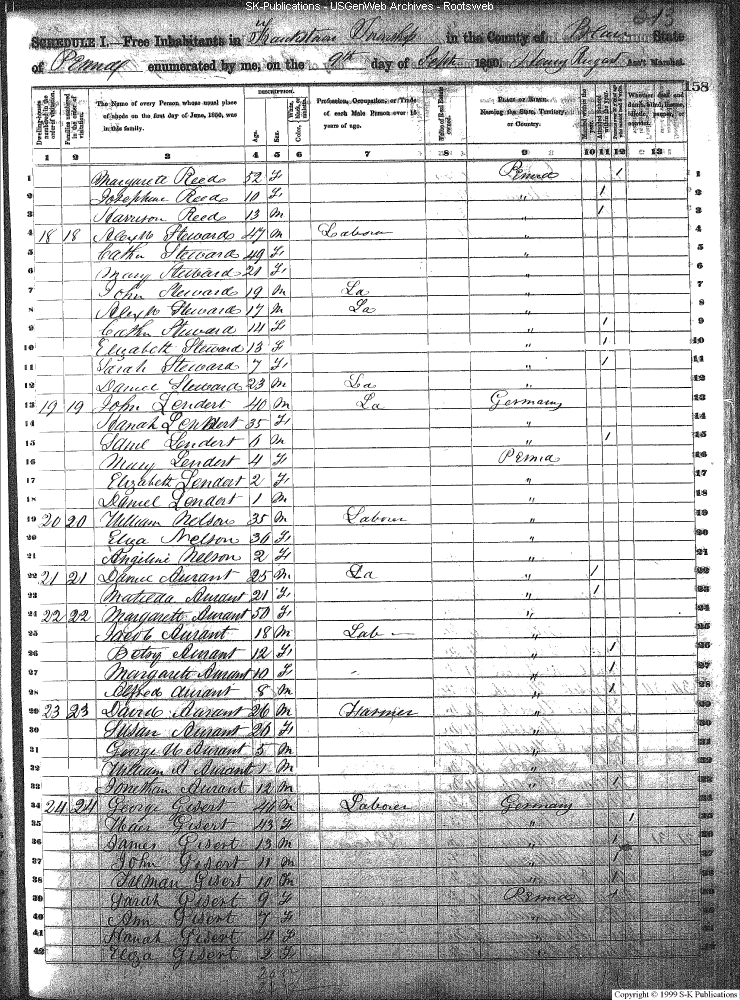 SK-Publications - USGenWeb Archives - Rootsweb
513
SCHEDULE I.—Free Inhabitants in Township in the County of Blair State
of Penna enumerated by me, on the 9th day of Sept 1850. Henry August Ass't Marshal.
158
Dwelling-houses numbered in the order of visitation.
Families numbered in the order of visitation.
The Name of every Person whose usual place of abode on the first day of June, 1850, was in this family.
DESCRIPTION.
Age.
Sex.
White, black, or mulatto.
Color,
Profession, Occupation, or Trade of each Male Person over 15 years of age.
Value of Real Estate owned.
PLACE OF BIRTH. Naming the State, Territory, or Country.
Married within the year.
Whether deaf and dumb, blind, insane, idiotic, pauper, or convict.
1 2 3 4 5 6 7 8 9 10 11 12 13
1 Margarett Reed 52 F Penna / 1
2 Josephine Reed 10 F " / 2
3 Harrison Reed 13 M " / 3
4 18 18 Alexr Steward 47 M Laborer " 4
5 Cathn Steward 49 F " 5
6 Mary Steward 21 F " 6
7 John Steward 19 M La " 7
8 Alexr Steward 17 M La " 8
9 Cathn Steward 14 F " / 9
10 Elizabeth Steward 13 F " / 10
11 Sarah Steward 7 F " / 11
12 Daniel Steward 23 M La " 12
13 19 19 John Lendert 40 M La Germany 13
14 Hanah Lendert 35 F " 14
15 Lendert 6 M " / 15
16 Mary Lendert 4 F Penna 16
17 Elizabeth Lendert 2 F " 17
18 Daniel Lendert 1 M " 18
19 20 20 William Nelson 35 M Laborer " 19
20 Eliza Nelson 30 F " 20
21 Angeline Nelson 2 F " 21
22 21 21 Daniel Aurant 25 M La " / 22
23 Matilda Aurant 21 F " / 23
24 22 22 Margarett Aurant 50 F " 24
25 Jacob Aurant 18 M Lab " 25
26 Betsy Aurant 12 F " / 26
27 Margarett Aurant 10 F " / 27
28 Alfred Aurant 8 M " / 28
29 23 23 David Aurant 26 M Farmer " 29
30 Susan Aurant 20 F " 30
31 George W Aurant 5 M " 31
32 William A Aurant 1 M " 32
33 Jonathan Aurant 12 M " / 33
34 24 24 George Gisert 46 M Laborer Germany 34
35 Gisert 43 F " / 35
36 James Gisert 13 M " / 36
37 John Gisert 11 M " / 37
38 Tillman Gisert 10 M " / 38
39 Sarah Gisert 9 F Penna / 39
40 Ann Gisert 7 F " 40
41 Hanah Gisert 4 F " 41
42 Eliza Gisert 2 F " 42
Copyright © 1999 S-K Publications